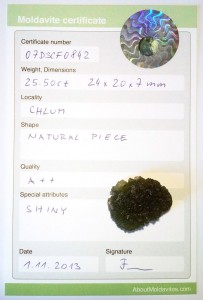 Moldavite certificate
Certificate number
07DSCF0842
Weight, Dimensions
25.50ct 24x20x7mm
Locality
CHLUM
Shape
NATURAL PIECE
Quality
A++
Special attributes
SHINY
Date
Signature
1.11.2013
AboutMoldavites.com